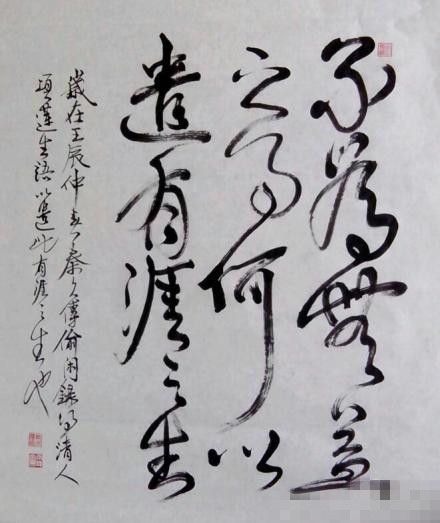 不為無益
之事何以
遣有涯之生
歲在壬辰仲春秦人傳偷閑錄得清人
項蓮生語以遣此有涯之生也